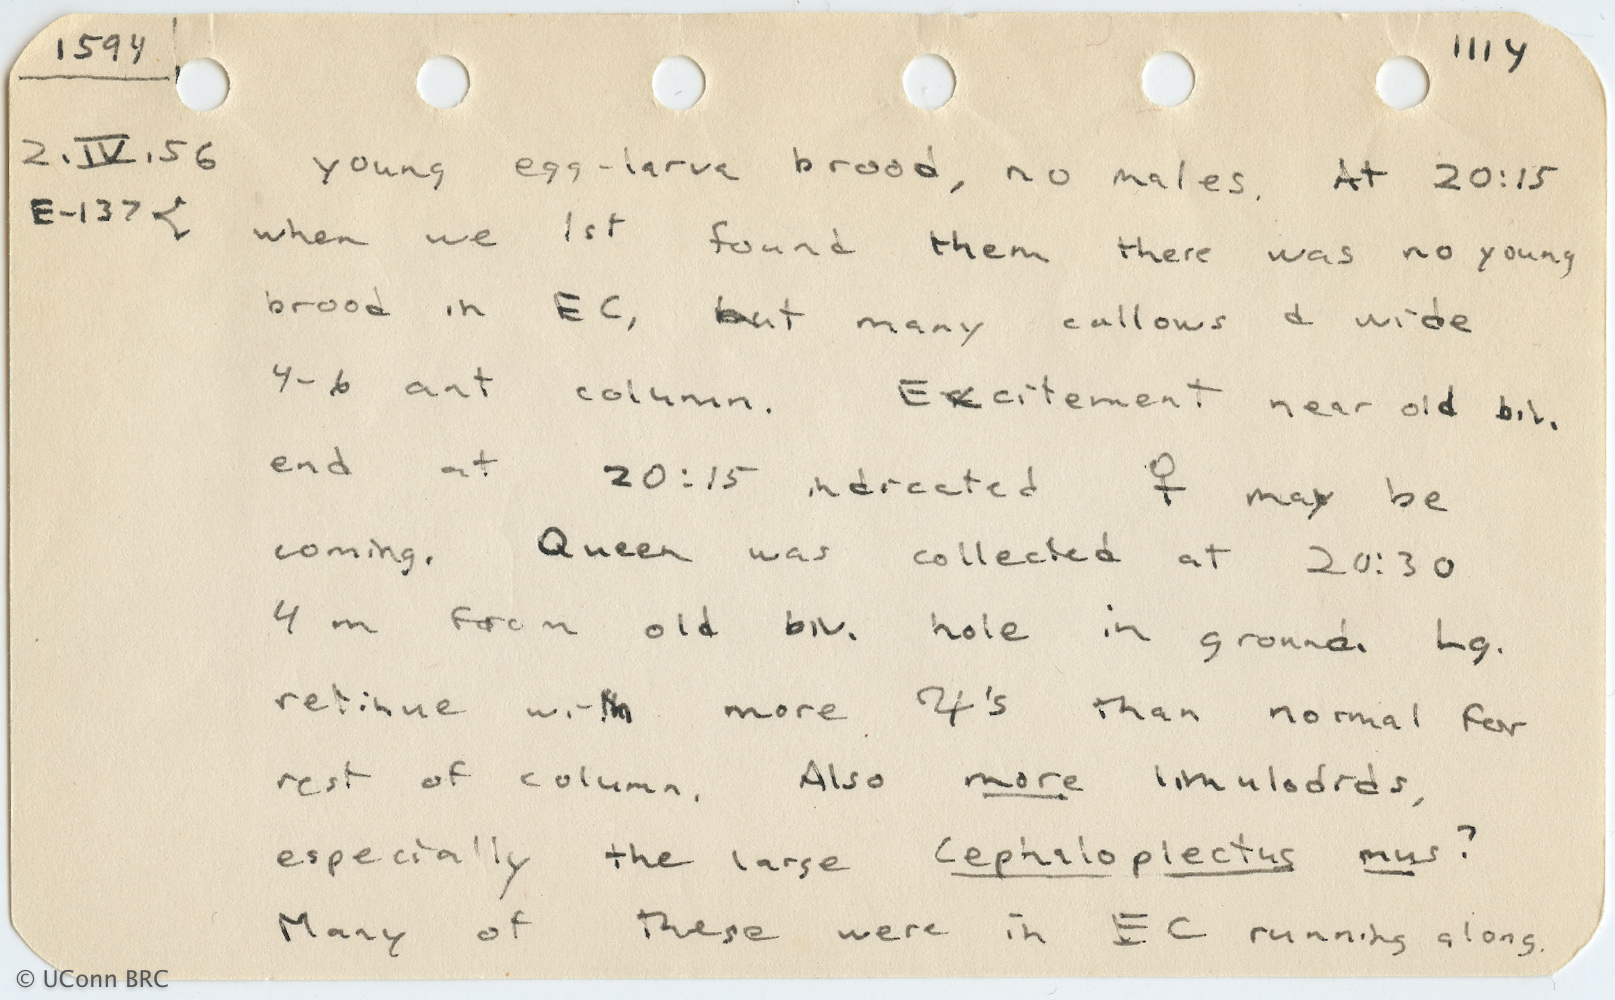 1594
1114
2.IV.56 young egg-larva brood, no males. At 20:15
E-137 when we 1st found them there was no young
brood in EC, but many callows & wide
4-6 ant column. Excitement near old biv.
end at 20:15 indicated ♀ may be
coming. Queen was collected at 20:30
4 m from old biv. hole in ground. Lg.
retinue with more ♃'s than normal for
rest of column. Also more limulodids,
especially the large Cephaloplectus mus?
Many of these were in EC running along.
© UConn BRC